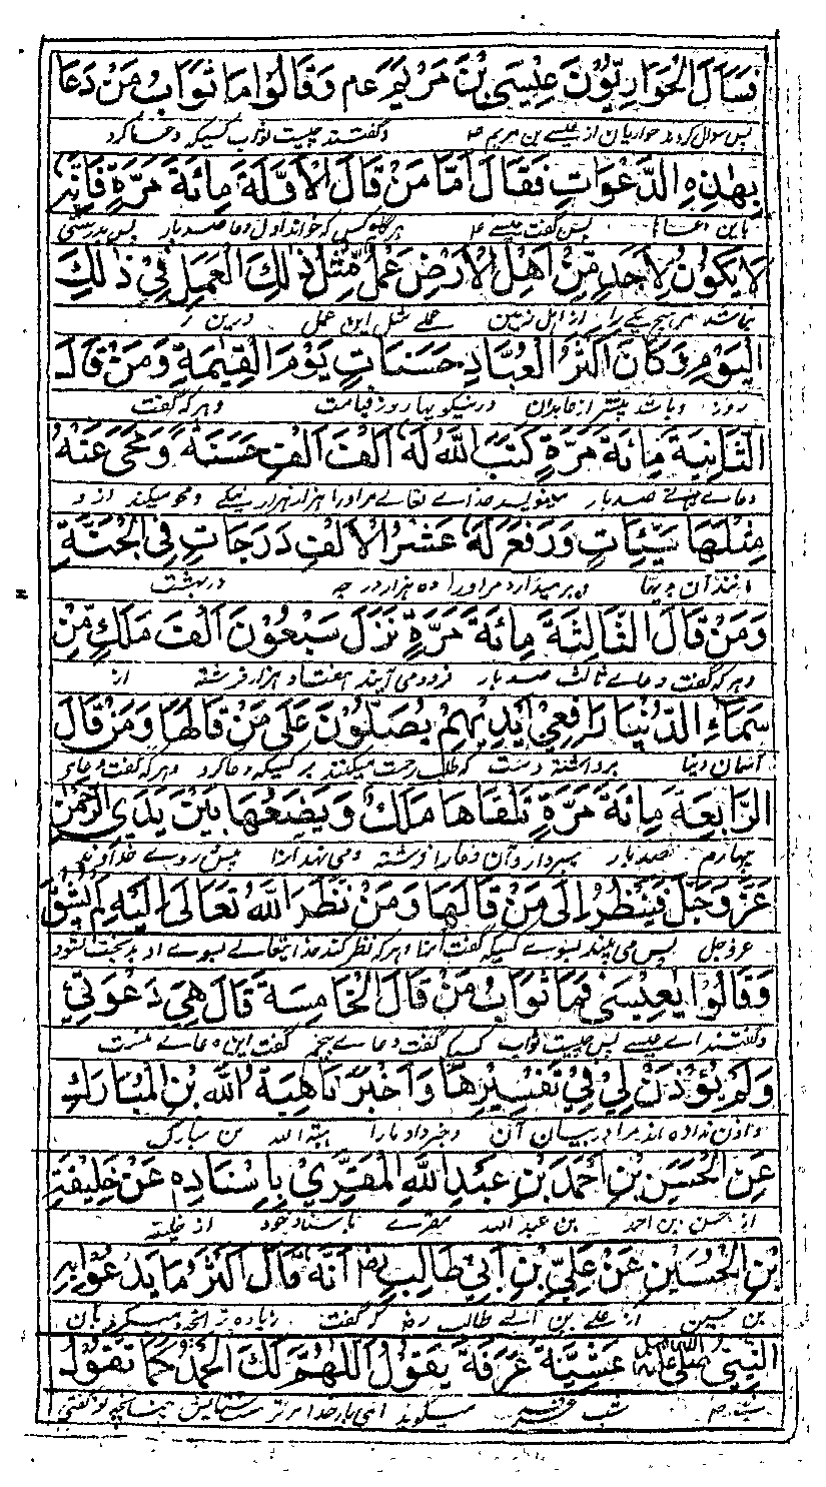 فَسَاَلَ الْحَوَارِيُّوْنَ عِيْسَى بْنَ مَرْيَمَ عم وَقَالُوْا مَا ثَوَابُ مَنْ دَعَا
پس سوال کردند حواریان از عیسے بن مریم ع و گفتند چیست ثواب کسیکه دعا کرد
بِهٰذِهِ الدَّعَوَاتِ فَقَالَ اَمَّا مَنْ قَالَ الْاَوَّلَةَ مِائَةَ مَرَّةٍ فَاِنَّهٗ
باین دعاها پس گفت عیسے ع هر کس که خواند اول دعا صد بار پس بدرستی
لَا يَكُوْنُ لِاَحَدٍ مِّنْ اَهْلِ الْاَرْضِ عَمَلٌ مِّثْلُ ذٰلِكَ الْعَمَلِ فِيْ ذٰلِكَ
نباشد مر هیچ یکے را از اهل زمین عملے مثل این عمل درین
الْيَوْمِ وَكَانَ اَكْثَرُ الْعُبَّادِ حَسَنَاتٍ يَوْمَ الْقِيٰمَةِ وَمَنْ قَالَ
روز و باشد بیشتر از عابدان در نیکویها روز قیامت و هر که گفت
الثَّانِيَةَ مِائَةَ مَرَّةٍ كَتَبَ اللّٰهُ لَهٗ اَلْفَ اَلْفِ حَسَنَةٍ وَمَحٰى عَنْهُ
دعاے صد بار مینویسد خداے تعالے مر او را هزار هزار نیکے و محو میکند از و
مِثْلَهَا سَيِّئَاتٍ وَرَفَعَ لَهٗ عَشْرَ الْاٰلٰفِ دَرَجَاتٍ فِي الْجَنَّةِ
مانند آن بدیها و بر میدارد مر او را ده هزار درجه در بهشت
وَمَنْ قَالَ الثَّالِثَةَ مِائَةَ مَرَّةٍ نَزَلَ سَبْعُوْنَ اَلْفَ مَلَكٍ مِّنْ
و هر که گفت دعاے ثالث صد بار فرود می آیند هفتاد هزار فرشته از
سَمَاءِ الدُّنْيَا رَافِعِيْ اَيْدِيْهِمْ يُصَلُّوْنَ عَلٰى مَنْ قَالَهَا وَمَنْ قَالَ
آسمان دنیا برداشته دست که طلب رحمت میکنند بر کسیکه دعا کرد و هر که گفت دعاے
الرَّابِعَةَ مِائَةَ مَرَّةٍ تَلَقَّاهَا مَلَكٌ وَيَضَعُهَا بَيْنَ يَدَيِ الرَّحْمٰنِ
چهارم صد بار آن دعا را فرشته و می نهد آنرا پیش روے خداوند
عَزَّ وَجَلَّ فَيَنْظُرُ اِلٰى مَنْ قَالَهَا وَمَنْ نَظَرَ اللّٰهُ تَعَالٰى اِلَيْهِ لَمْ يَشْقَ
عز و جل پس می بیند بسوے کسیکه گفت آنرا و هر که نظر کند خدا یتعالے بسوے او بدبخت نشود
وَقَالُوْا يٰعِيْسٰى فَمَا ثَوَابُ مَنْ قَالَ الْخَامِسَةَ قَالَ هِيَ دَعْوَتِيْ
و گفتند اے عیسے پس چیست ثواب کسیکه گفت دعاے پنجم گفت این دعاے منست
وَلَمْ يُؤْذَنْ لِيْ فِيْ تَفْسِيْرِهَا وَاَخْبَرَنَا هِبَةُ اللّٰهِ بْنِ الْمُبَارَكِ
و اذن نداده اند مرا در بیان آن و خبر داد مارا هبة الله بن مبارک
عَنِ الْحَسَنِ بْنِ اَحْمَدَ بْنِ عَبْدِ اللّٰهِ الْمُقْرِيْ بِاِسْنَادِهٖ عَنْ خَلِيْفَةِ
از حسن بن احمد بن عبد الله مقرے باسناد خود از خلیفه
بْنِ الْحُسَيْنِ عَنْ عَلِيِّ بْنِ اَبِيْ طَالِبٍ رض اَنَّهٗ قَالَ اَكْثَرُ مَا يَدْعُوْ بِهِ
بن حسین از علے بن ابے طالب رض که گفت زیاده تر آنچه دعا میکرد بآن
النَّبِيُّ صلى الله عليه عَشِيَّةَ عَرَفَةَ يَقُوْلُ اَللّٰهُمَّ لَكَ الْحَمْدُ كَمَا نَقُوْلُ
شب عرفه میگوید الهی بار خدا مر تر ست ستایش چنانچه تو گفتی